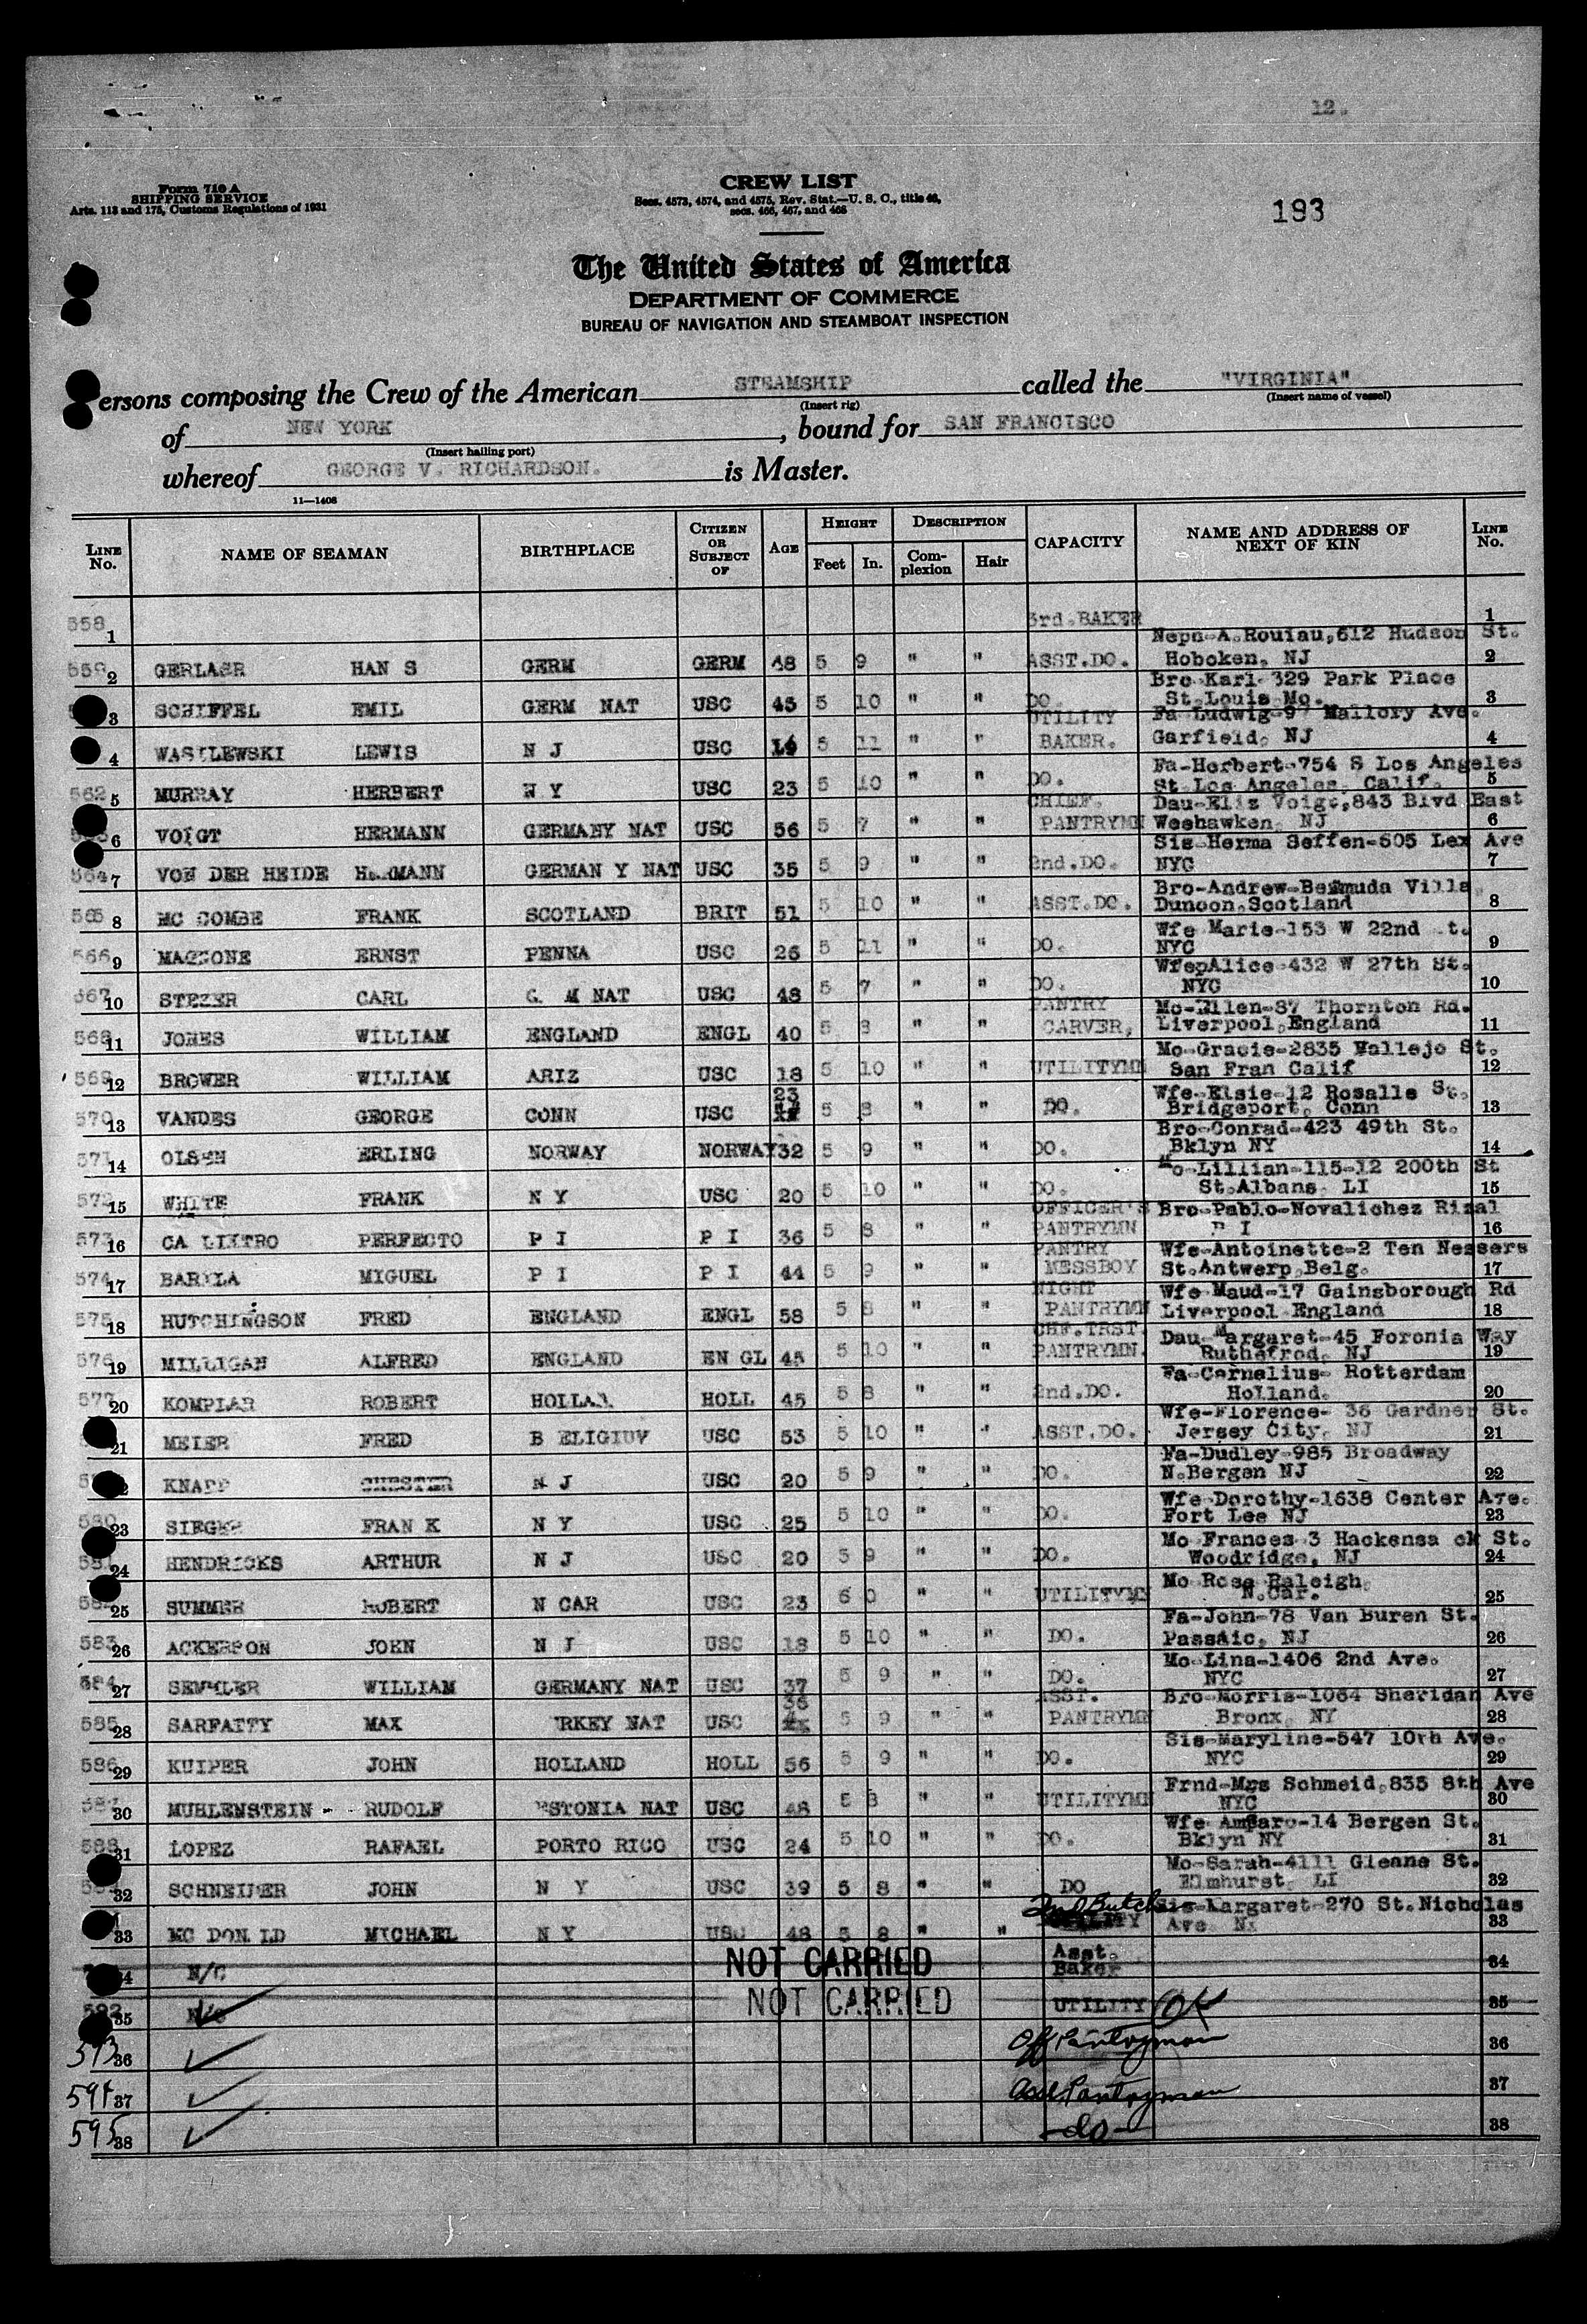 12.
Form 710 A
SHIPPING SERVICE
Arts. 113 and 175, Customs Regulations of 1931
CREW LIST
Secs. 4573, 4574, and 4575, Rev. Stat.—U. S. C., title 46,
secs. 465, 467, and 468
193
The United States of America
DEPARTMENT OF COMMERCE
BUREAU OF NAVIGATION AND STEAMBOAT INSPECTION
ersons composing the Crew of the American STEAMSHIP called the "VIRGINIA"
(Insert rig) (Insert name of vessel)
of NEW YORK, bound for SAN FRANCISCO
(Insert hailing port)
whereof GEORGE V. RICHARDSON. is Master.
11—1406
LINE No. NAME OF SEAMAN BIRTHPLACE CITIZEN OR SUBJECT OF AGE HEIGHT Feet In. DESCRIPTION Complexion Hair CAPACITY NAME AND ADDRESS OF NEXT OF KIN LINE No.
558 1 3rd.BAKER 1
559 2 GERLASR HAN S GERM GERM 48 5 9 " " ASST.DO. Neph-A.Rouiau,612 Hudson St. Hoboken, NJ 2
3 SCHIFFEL EMIL GERM NAT USC 45 5 10 " " DO. Bro-Karl-329 Park Place St.Louis Mo. 3
4 WASILEWSKI LEWIS N J USC 5 11 " " UTILITY BAKER. Fa-Ludwig-97 Mallory Ave. Garfield, NJ 4
562 5 MURRAY HERBERT N Y USC 23 5 10 " " DO. Fa-Herbert-754 S Los Angeles St Los Angeles, Calif. 5
6 VOIGT HERMANN GERMANY NAT USC 56 5 7 " " CHIEF. PANTRYMN Dau-Eliz Voigt,843 Blvd East Weehawken, NJ 6
564 7 VON DER HEIDE HERMANN GERMAN Y NAT USC 35 5 9 " " 2nd.DO. Sis-Herma Seffen-605 Lex Ave NYC 7
565 8 MC COMBE FRANK SCOTLAND BRIT 51 5 10 " " ASST.DO. Bro-Andrew-Bermuda Villa, Dunoon,Scotland 8
566 9 MAGZONE ERNST PENNA USC 26 5 11 " " DO. Wfe Marie-153 W 22nd t. NYC 9
567 10 STEZER CARL G. M NAT USC 48 5 7 " " DO. WfepAlice-432 W 27th St. NYC 10
568 11 JONES WILLIAM ENGLAND ENGL 40 5 8 " " PANTRY CARVER, Mo-Ellen-87 Thornton Rd. Liverpool,England 11
569 12 BROWER WILLIAM ARIZ USC 18 5 10 " " UTILITYMN Mo-Gracie-2835 Vallejo St. San Fran Calif 12
570 13 VANDES GEORGE CONN USC 23 5 8 " " DO. Wfe-Elsie-12 Rosalle St. Bridgeport, Conn 13
571 14 OLSEN ERLING NORWAY NORWAY 32 5 9 " " DO. Bro-Conrad-423 49th St. Bklyn NY 14
572 15 WHITE FRANK N Y USC 20 5 10 " " DO. Mo-Lillian-115-12 200th St St.Albans LI 15
573 16 CA LIXTRO PERFECTO P I P I 36 5 8 " " OFFICER'S PANTRYMN Bro-Pablo-Novalichez Rizal P I 16
574 17 BARILA MIGUEL P I P I 44 5 9 " " PANTRY MESSBOY Wfe-Antoinette-2 Ten Nessers St.Antwerp,Belg. 17
575 18 HUTCHINGSON FRED ENGLAND ENGL 58 5 8 " " NIGHT PANTRYMN Wfe Maud-17 Gainsborough Rd Liverpool England 18
576 19 MILLIGAN ALFRED ENGLAND EN GL 45 5 10 " " CHF.TRST. PANTRYMN. Dau Margaret-45 Foronia Way Ruthefrod, NJ 19
577 20 KOMPLAR ROBERT HOLLA HOLL 45 5 8 " " 2nd.DO. Fa-Cornelius- Rotterdam Holland. 20
21 MEIER FRED B ELIGIUV USC 53 5 10 " " ASST.DO. Wfe-Florence- 36 Gardner St. Jersey City, NJ 21
KNAPP CHESTER N J USC 20 5 9 " " DO. Fa-Dudley-985 Broadway N.Bergen NJ 22
580 23 SIEGER FRAN K N Y USC 25 5 10 " " DO. Wfe-Dorothy-1638 Center Ave. Fort Lee NJ 23
581 24 HENDRICKS ARTHUR N J USC 20 5 9 " " DO. Mo-Frances-3 Hackensa ck St. Woodridge, NJ 24
25 SUMMER ROBERT N CAR USC 23 6 0 " " UTILITYMN Mo Rose Raleigh, N.Car. 25
583 26 ACKERSON JOHN N J USC 18 5 10 " " DO. Fa-John-78 Van Buren St. Passaic, NJ 26
584 27 SEMMLER WILLIAM GERMANY NAT USC 37 5 9 " " DO. Mo-Lina-1406 2nd Ave. NYC 27
585 28 SARFATTY MAX RKEY NAT USC 36 5 9 " " ASST. PANTRYMN Bro-Morris-1064 Sheridan Ave Bronx, NY 28
586 29 KUIPER JOHN HOLLAND HOLL 56 5 9 " " DO. Sis-Maryline-547 10th Ave. NYC 29
587 30 MUHLENSTEIN - RUDOLF ESTONIA NAT USC 48 5 8 " " UTILITYMN Frnd-Mrs Schmeid,835 8th Ave NYC 30
588 31 LOPEZ RAFAEL PORTO RICO USC 24 5 10 " " DO. Wfe Amparo-14 Bergen St. Bklyn NY 31
32 SCHNEIDER JOHN N Y USC 39 5 8 " " DO Mo-Sarah-4111 Gleane St. Elmhurst, LI 32
33 MC DON LD MICHAEL N Y USC 48 5 8 " " 2nd Butcher Sis-Margaret-270 St.Nicholas Ave 33
N/C NOT CARRIED Asst. Baker 34
592 35 N/C NOT CARRIED UTILITY 35
593 36 Off Pantryman 36
594 37 Asst Pantryman 37
595 38 -do- 38